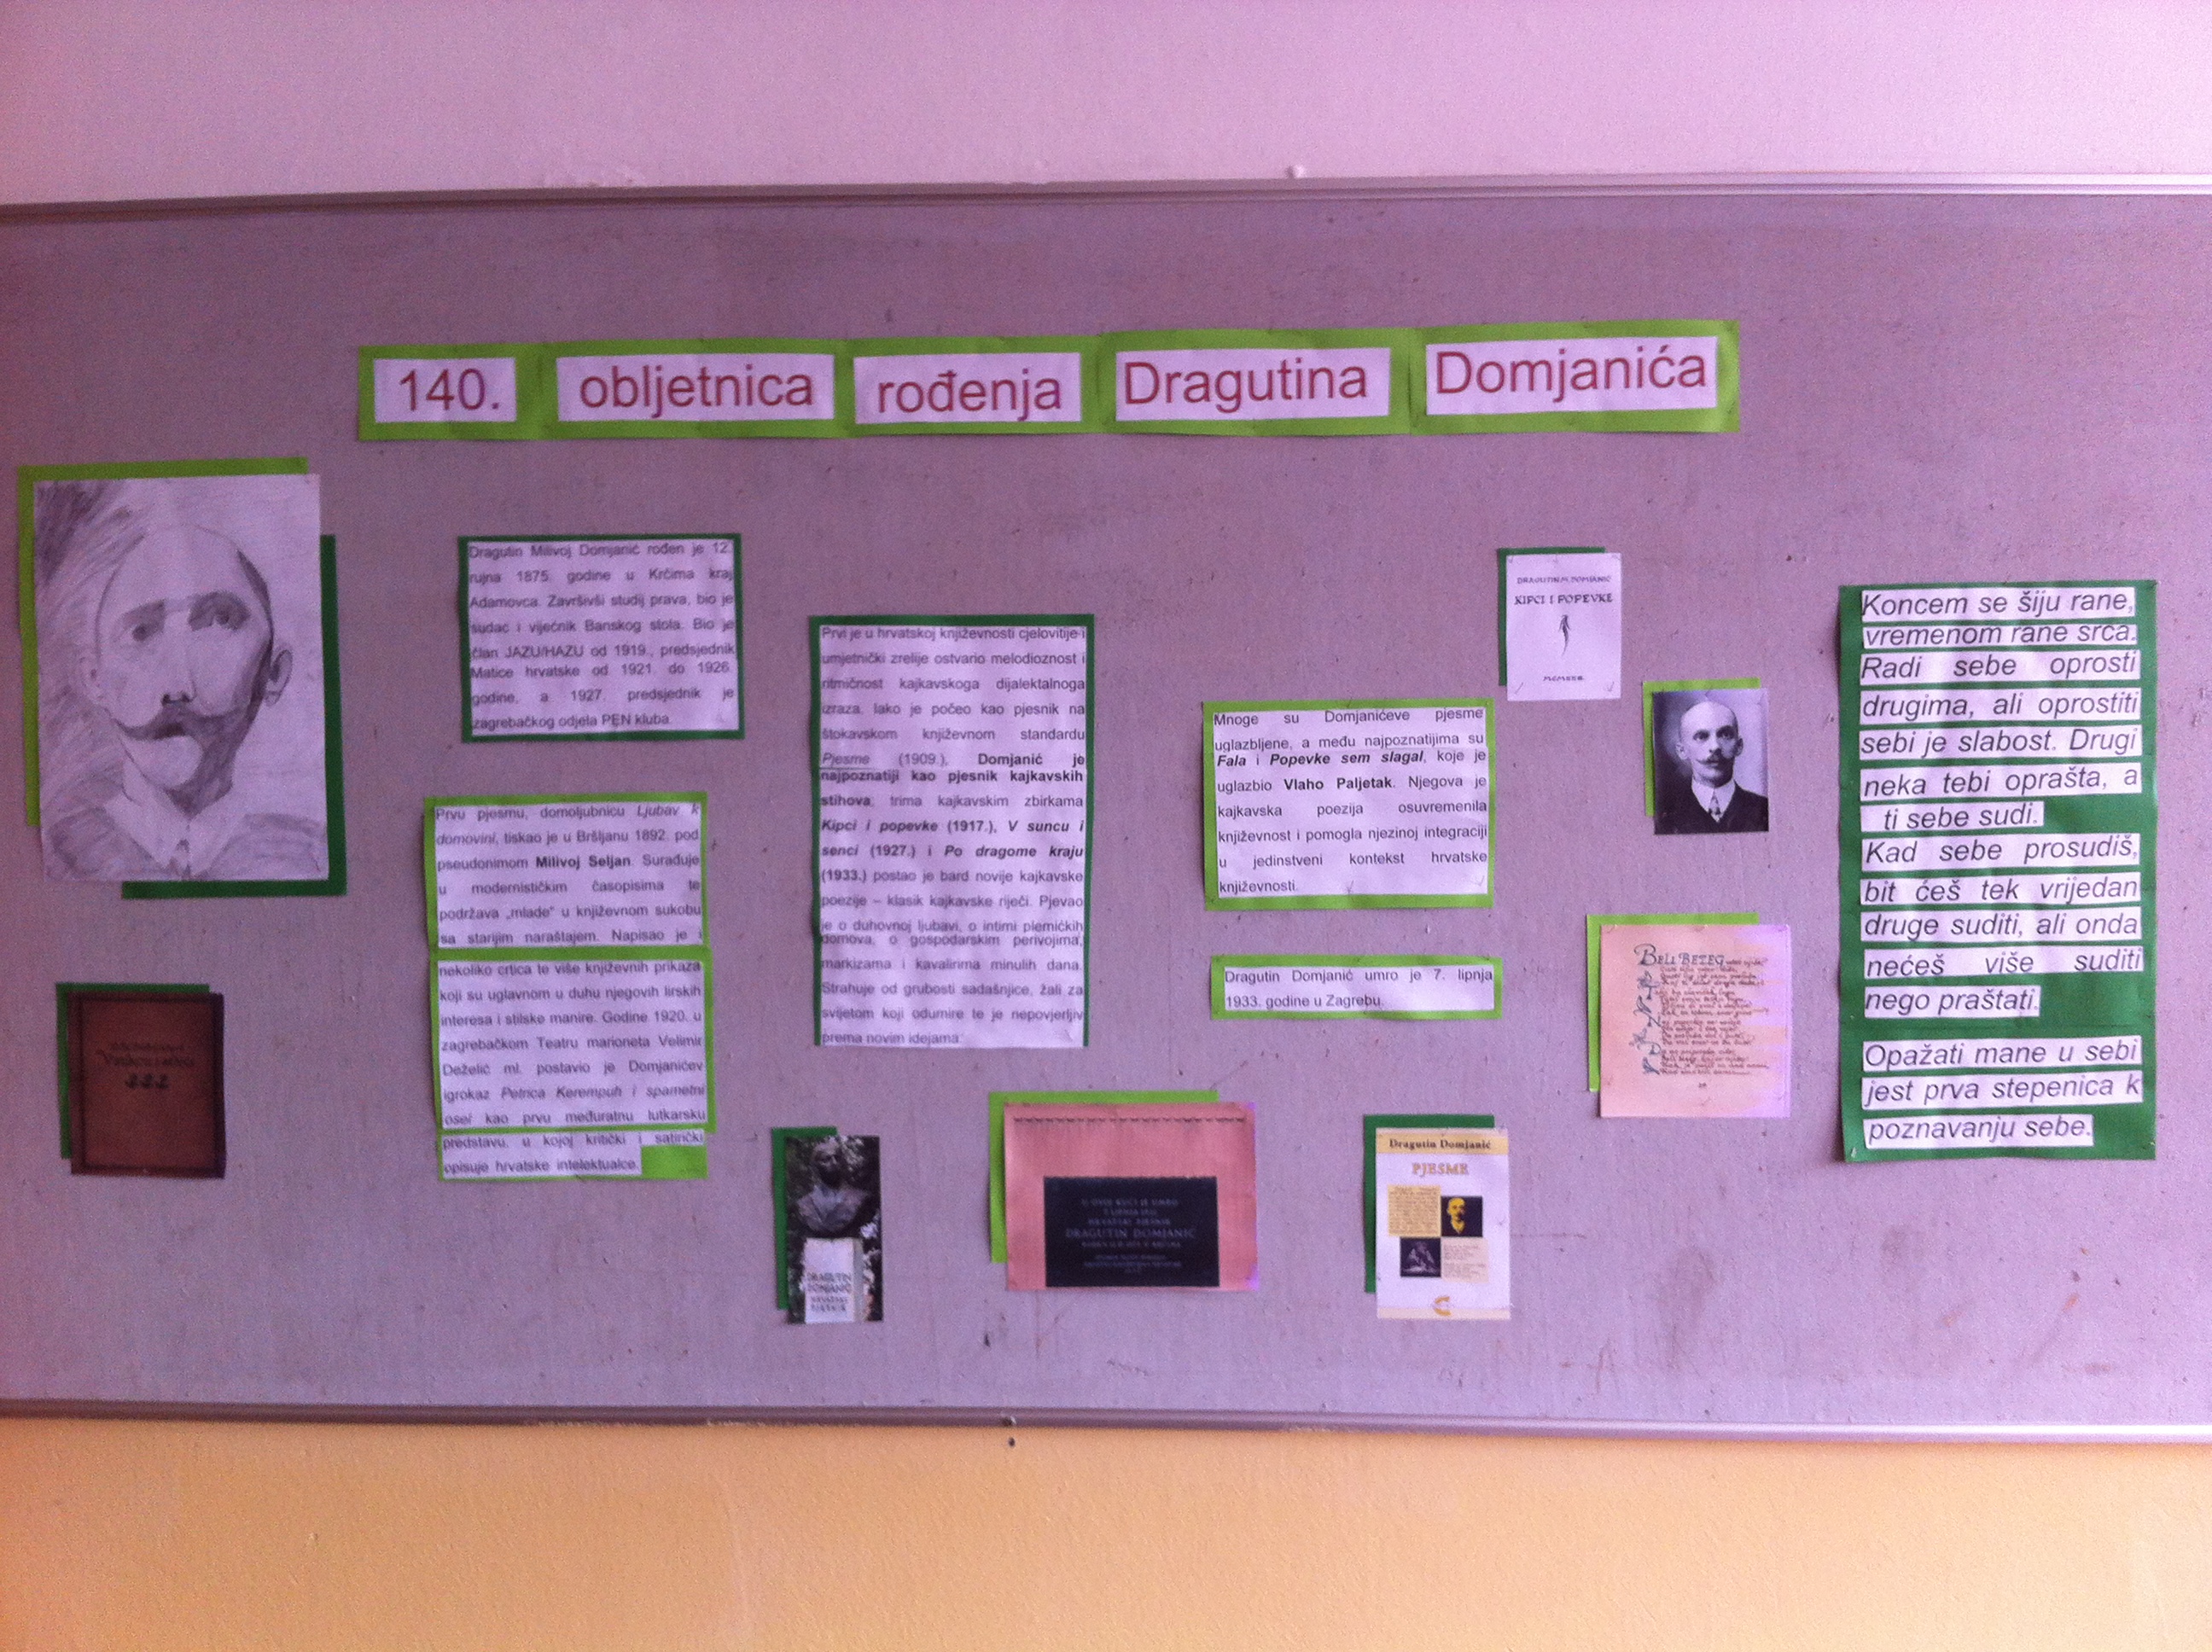 140. obljetnica rođenja Dragutina Domjanića
Dragutin Milivoj Domjanić rođen je 12.
rujna 1875. godine u Krčima kraj
Adamovca. Završivši studij prava, bio je
sudac i vijećnik Banskog stola. Bio je
član JAZU/HAZU od 1919., predsjednik
Matice hrvatske od 1921. do 1926.
godine, a 1927. predsjednik je
zagrebačkog odjela PEN kluba.
Prvu pjesmu, domoljubnicu Ljubav k
domovini, tiskao je u Bršljanu 1892. pod
pseudonimom Milivoj Seljan. Surađuje
u modernističkim časopisima te
podržava „mlade“ u književnom sukobu
sa starijim naraštajem. Napisao je i
nekoliko crtica te više književnih prikaza
koji su uglavnom u duhu njegovih lirskih
interesa i stilske manire. Godine 1920. u
zagrebačkom Teatru marioneta Velimir
Deželić ml. postavio je Domjanićev
igrokaz Petrica Kerempuh i spametni
osel kao prvu međuratnu lutkarsku
predstavu, u kojoj kritički i satirički
opisuje hrvatske intelektualce.
Prvi je u hrvatskoj književnosti cjelovitije i
umjetnički zrelije ostvario melodioznost i
ritmičnost kajkavskoga dijalektalnoga
izraza. Iako je počeo kao pjesnik na
štokavskom književnom standardu
Pjesme (1909.), Domjanić je
najpoznatiji kao pjesnik kajkavskih
stihova; trima kajkavskim zbirkama
Kipci i popevke (1917.), V suncu i
senci (1927.) i Po dragome kraju
(1933.) postao je bard novije kajkavske
poezije – klasik kajkavske riječi. Pjevao
je o duhovnoj ljubavi, o intimi plemićkih
domova, o gospodarskim perivojima,
markizama i kavalirima minulih dana.
Strahuje od grubosti sadašnjice, žali za
svijetom koji odumire te je nepovjerljiv
prema novim idejama.
Mnoge su Domjanićeve pjesme
uglazbljene, a među najpoznatijima su
Fala i Popevke sem slagal, koje je
uglazbio Vlaho Paljetak. Njegova je
kajkavska poezija osuvremenila
književnost i pomogla njezinoj integraciji
u jedinstveni kontekst hrvatske
književnosti.
Dragutin Domjanić umro je 7. lipnja
1933. godine u Zagrebu.
DRAGUTIN M. DOMJANIĆ
KIPCI I POPEVKE
BELI BETEG
Koncem se šiju rane,
vremenom rane srca.
Radi sebe oprosti
drugima, ali oprostiti
sebi je slabost. Drugi
neka tebi oprašta, a
ti sebe sudi.
Kad sebe prosudiš,
bit ćeš tek vrijedan
druge suditi, ali onda
nećeš više suditi
nego praštati.
Opažati mane u sebi
jest prva stepenica k
poznavanju sebe.
DRAGUTIN
DOMJANIĆ
HRVATSKI
PJESNIK
U OVOJ KUĆI JE UMRO
HRVATSKI PJESNIK
DRAGUTIN DOMJANIĆ
Dragutin Domjanić
PJESME